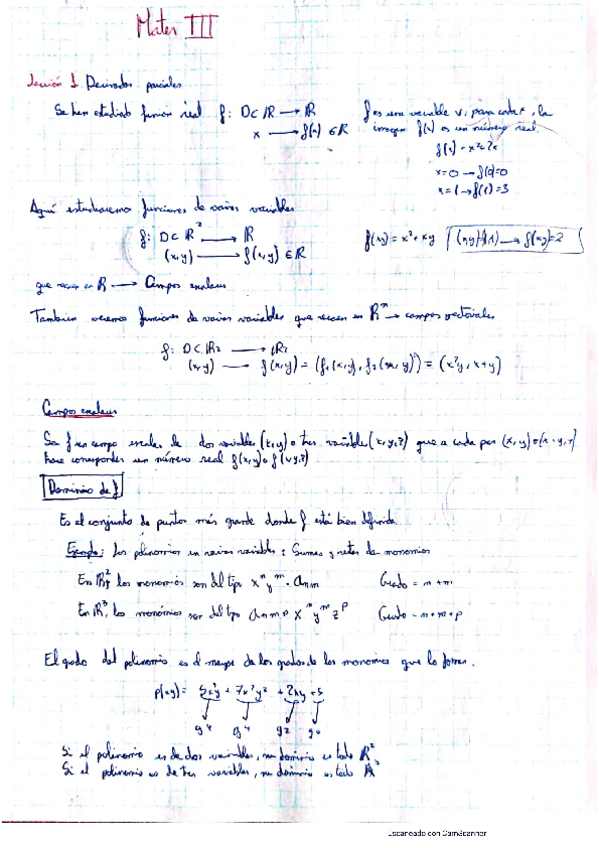 Mates III
Lección 1 Derivadas parciales
Se han estudiado función real f: D⊂ℝ → ℝ
x → f(x) ∈ ℝ
f es una variable y, para cada x, la
imagen f(x) es un número real.
f(x) = x²+2x
x=0 → f(0)=0
x=1 → f(1)=3
Aquí estudiaremos funciones de varias variables
f: D⊂ℝ² → ℝ
(x,y) → f(x,y) ∈ ℝ
f(x,y) = x²+xy (x,y)=(1,1) → f(x,y)=2
que recaen en ℝ → Campos escalares
También veremos funciones de varias variables que recaen en ℝⁿ → campos vectoriales
f: D⊂ℝ2 → ℝ2
(x,y) → f(x,y) = (f₁(x,y), f₂(x,y)) = (x²y, x+y)
Campos escalares
Sea f un campo escalar de dos variables (x,y) o tres variables (x,y,z) que a cada par (x,y) o (x,y,z)
hace corresponder un número real f(x,y) o f(x,y,z)
Dominio de f
Es el conjunto de puntos más grande donde f está bien definida
Ejemplo: Los polinomios en varias variables: Sumas y restas de monomios
En ℝ², los monomios son del tipo xⁿyᵐ · anm Grado = n+m
En ℝ³, los monomios son del tipo anmp xⁿyᵐzᵖ Grado = n+m+p
El grado del polinomio es el mayor de los grados de los monomios que lo forman.
p(x,y) = 5x³y + 7x²y² + 2xy + 5
g4 g4 g2 g0
Si el polinomio es de dos variables, su dominio es todo ℝ²
Si el polinomio es de tres variables, su dominio es todo ℝ³
Escaneado con CamScanner